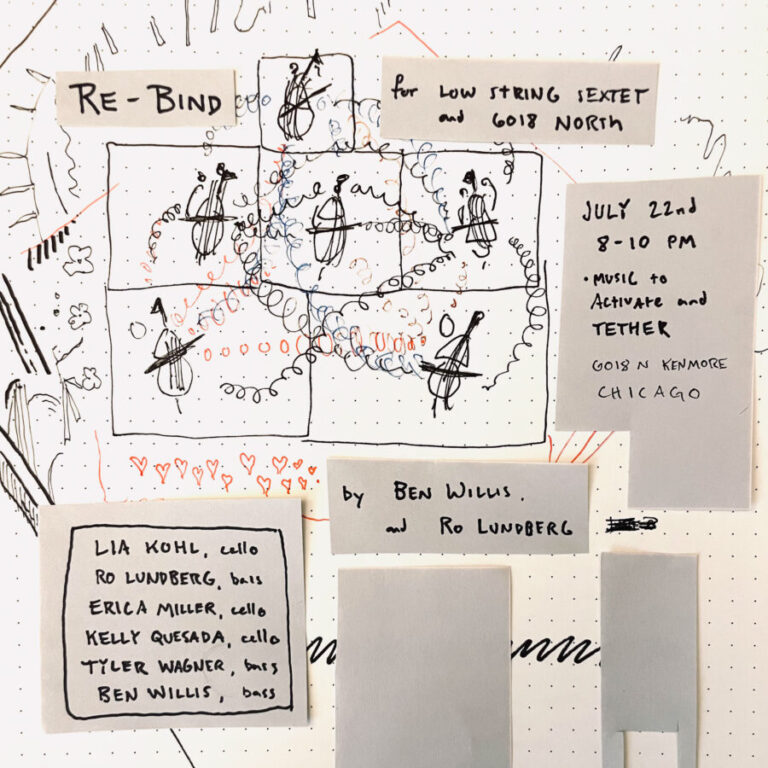 RE-BIND
for LOW STRING SEXTET
and 6018 NORTH
JULY 22nd
8-10 PM
• MUSIC to
Activate and
TETHER
6018 N KENMORE
CHICAGO
by BEN WILLIS.
and RO LUNDBERG
LIA KOHL, cello
RO LUNDBERG, bass
ERICA MILLER, cello
KELLY QUESADA, cello
TYLER WAGNER, bass
BEN WILLIS, bass